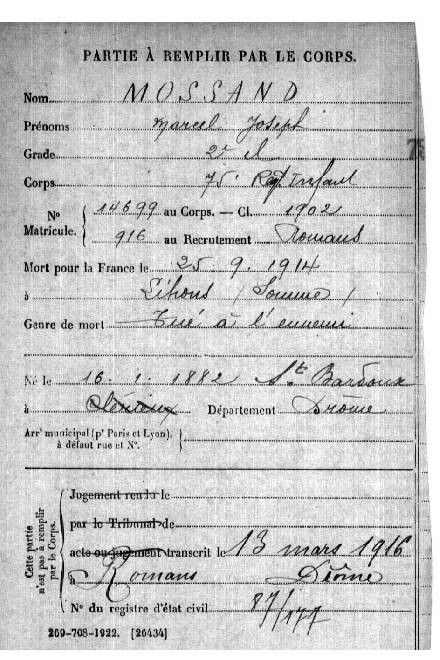 PARTIE À REMPLIR PAR LE CORPS.
Nom MOSSAND
Prénoms Marcel Joseph
Grade 2e cl
Corps 75e Regt Infant
No Matricule. 14699 au Corps. — Cl. 1902
916 au Recrutement Romans
Mort pour la France le 25 9. 1914
à Lihons (Somme)
Genre de mort Tué à l'ennemi
Né le 16. 1. 1882 St Bardoux
à Clérieux Département Drôme
Arrt municipal (pr Paris et Lyon), à défaut rue et No.
Cette partie n'est pas à remplir par le Corps.
Jugement rendu le
par le Tribunal de
acte ou jugement transcrit le 13 mars 1916
à Romans Drôme
No du registre d'état civil 87/177
269-708-1922. [26434]